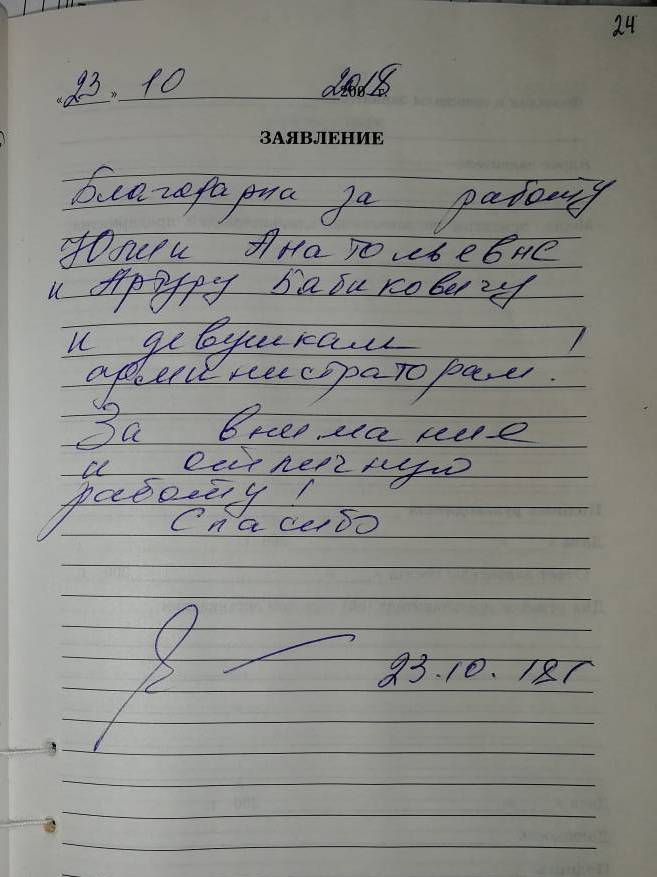 24
«23» 10 2018 г.
ЗАЯВЛЕНИЕ
Благодарна за работу
Юлии Анатольевне
и Артуру Бабиковичу
и девушкам !
администраторам.
За внимание
и отличную
работу!
Спасибо
23.10.18г